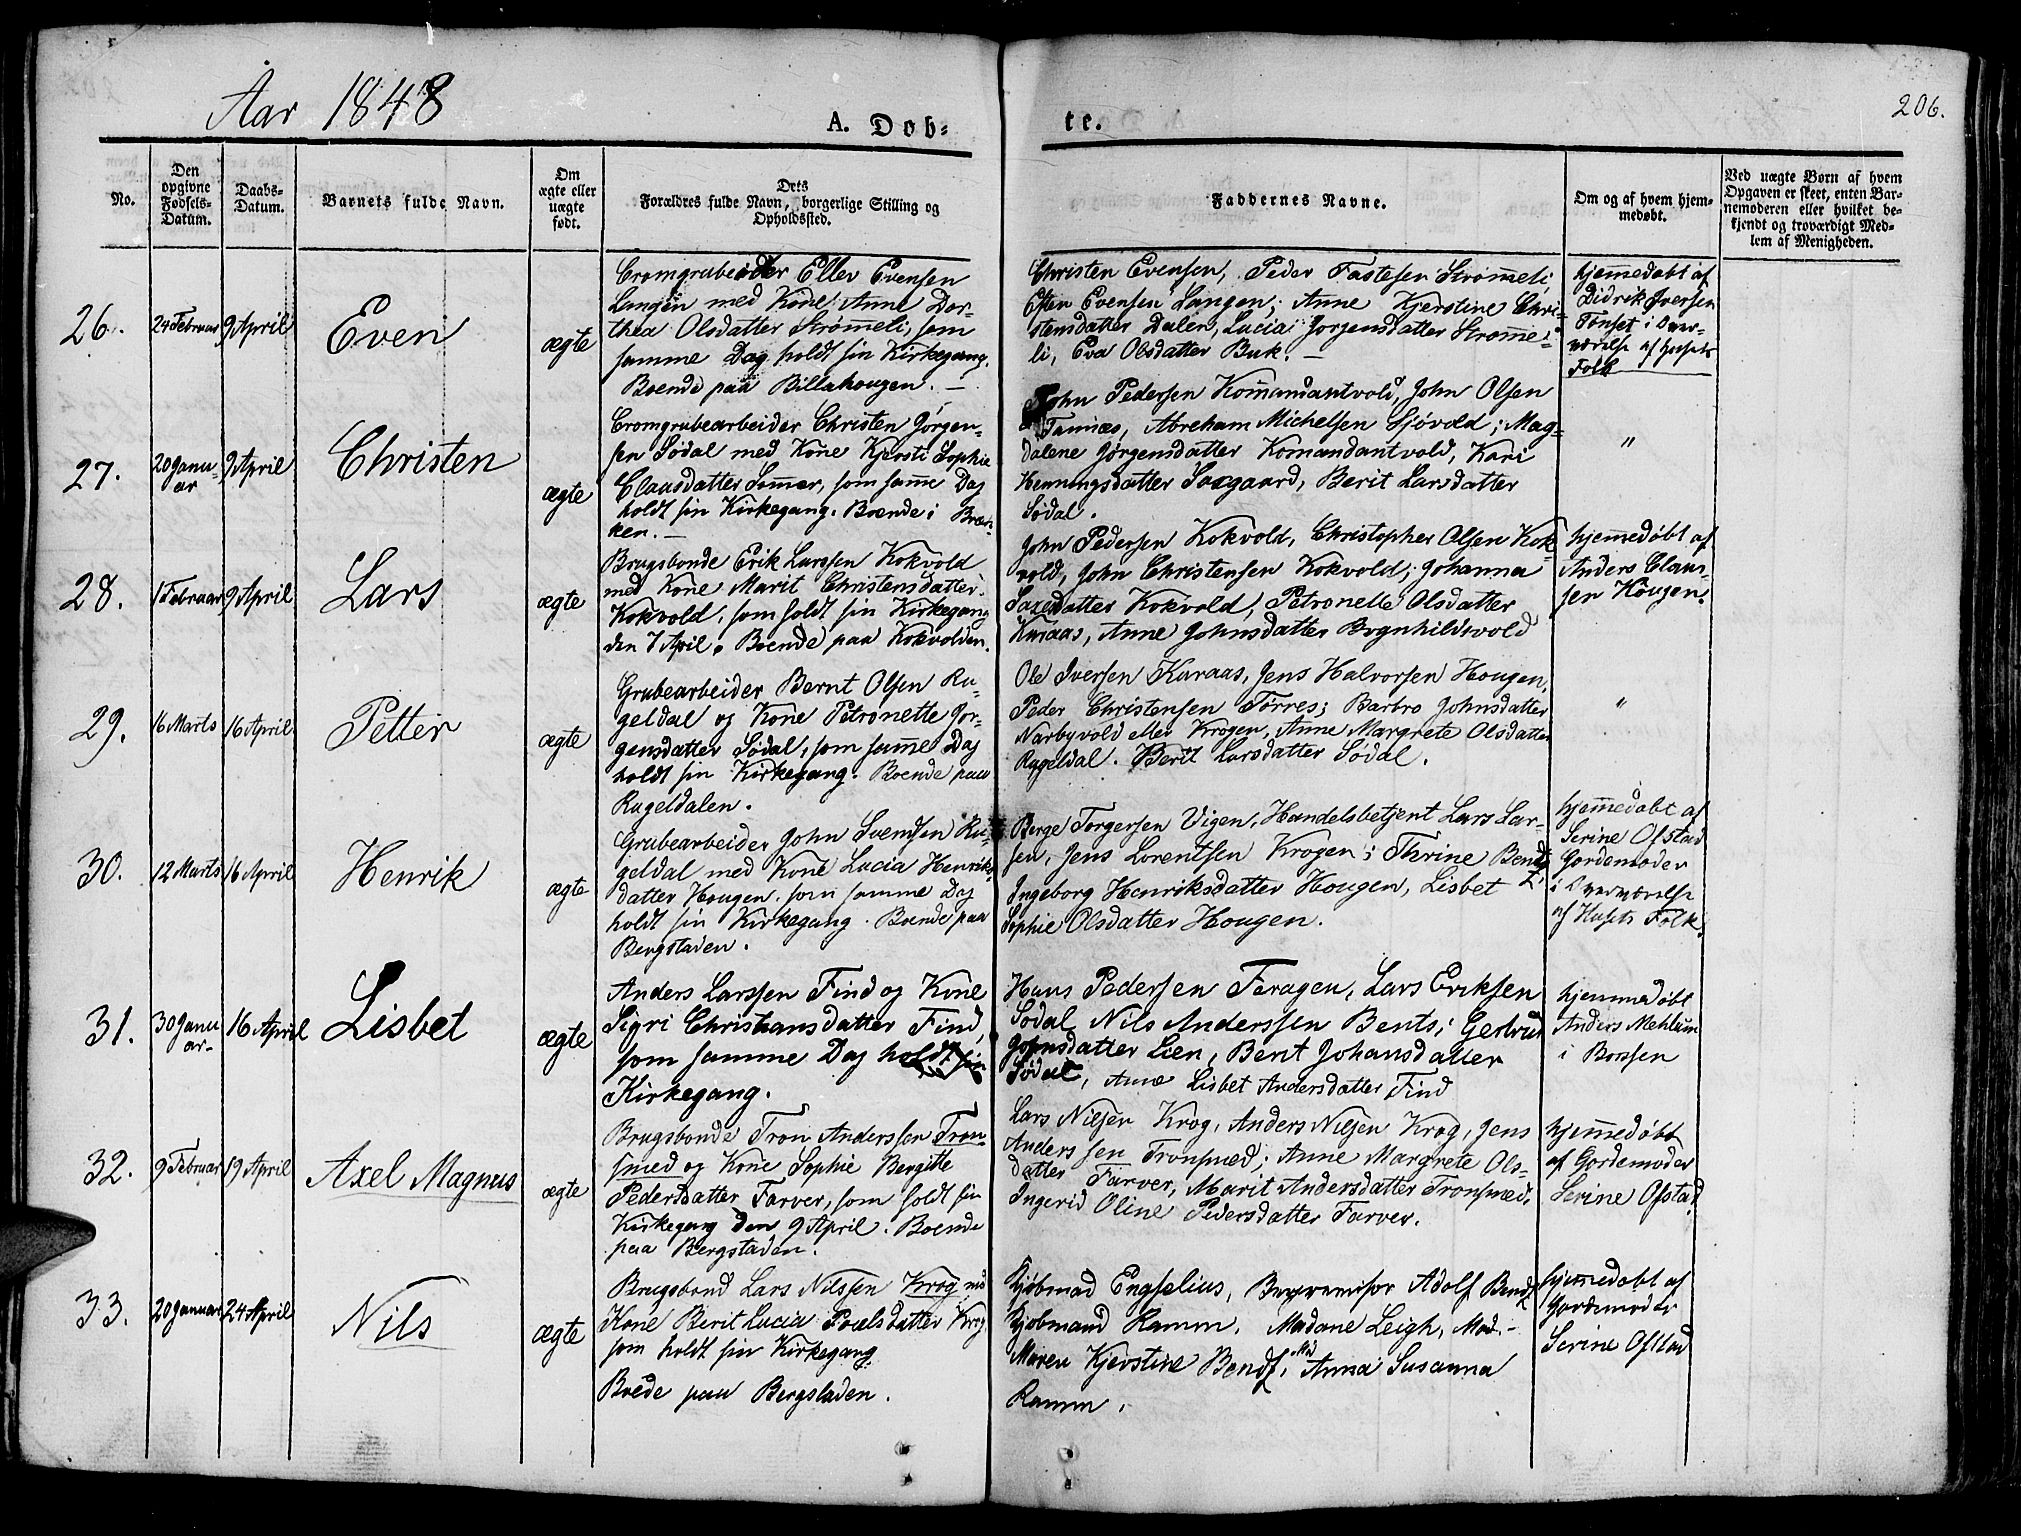 Aar 1848
A. Døb-
te.
206.
No.
Den
opgivne
Fødsels-
Datum.
Daabs-
Datum.
Barnets fulde Navn.
Om
ægte eller
uægte
født.
Dets
Forældres fulde Navn, borgerlige Stilling og
Opholdssted.
Faddernes Navne.
Om og af hvem hjem-
medøbt.
Ved uægte Børn af hvem
Opgaven er skeet, enten Bar-
nemoderen eller hvilket be-
kjendt og troværdigt Med-
lem af Menigheden.
26.
24 Februar
9 April
Even
ægte
Cromgrubearbeider Ellev Evensen
Langen med Kone Anne Dor-
thea Olsdatter Strømeli, som
samme Dag holdt sin Kirkegang.
Boende paa Billahougen. —
Christen Evensen, Peder Tastesen Strømeli,
Esten Evensen Langen; Anne Kjerstine Chri-
stensdatter Dalen, Lucia Jørgensdatter Strømme-
li, Eva Olsdatter Buk. —
hjemedøbt af
Didrik Iversen
Tønset i Over-
værelse af Husets
Folk
27.
20 Janu-
ar
9 April
Christen
ægte
Cromgrubearbeider Christen Jørgen-
sen Sødal med Kone Kjersti Sophie
Clausdatter Sommer, som samme Dag
holdt sin Kirkegang. Boende i Bræk-
ken. —
John Pedersen Komandantvold, John Olsen
Tamnæs, Abraham Michelsen Sjøvold; Mag-
dalene Jørgensdatter Komandantvold, Kari
Henningsdatter Saxgaard, Berit Larsdatter
Sødal.
"
28.
1 Februar
9 April
Lars
ægte
Brugsbonde Erik Larssen Kokvold
med Kone Marit Christensdatter
Kokvold, som holdt sin Kirkegang
den 7 April. Boende paa Kokvolden.
John Pedersen Kokvold, Christopher Olsen Kok-
vold, John Christensen Kokvold; Johanna
Saxedatter Kokvold, Petronelle Olsdatter
Kuraas, Anne Johnsdatter Bognhildsvold
hjemmedøbt af
Anders Claus-
sen Hougen.
29.
16 Marts
16 April
Petter
ægte
Grubearbeider Bernt Olsen Ru-
geldal og Kone Petronette Jør-
gensdatter Sødal, som samme Dag
holdt sin Kirkegang. Boende paa
Rugeldalen.
Ole Iversen Kuraas, Jens Halvorsen Hougen,
Peder Christensen Tørres; Barbro Johnsdatter
Narbyvold eller Krogen, Anne Margrete Olsdatter
Rugeldal. Berit Larsdatter Sødal.
"
30.
12 Marts
16 April
Henrik
ægte
Grubearbeider John Svendsen Ru-
geldal med Kone Lucia Henriks-
datter Hougen, som samme Dag
holdt sin Kirkegang. Boende paa
Bergstaden.
Berge Torgersen Vigen, Handelsbetjent Lars Lar-
sen, Jens Lorentsen Krogen; Thrine Bendz
Ingeborg Henriksdatter Hougen, Lisbet
Sophie Olsdatter Hougen.
hjemmedøbt af
Serine Ofstad
Gordemoder
i Overværelse
af Husets Folk.
31.
30 Janu-
ar-
16 April
Lisbet
ægte
Anders Larssen Find og Kone
Sigri Christiansdatter Find,
som samme Dag holdt sin
Kirkegang.
Hans Pedersen Feragen, Lars Eriksen
Sødal, Nils Anderssen Bents; Gertrud
Johnsdatter Lien, Berit Johansdatter
Sødal, Anne Lisbet Andersdatter Find
hjemmedøbt
Anders Mehlum
i Borssen
32.
9 Februar
19 April
Axel Magnus
ægte
Brugsbonde Tron Anderssen Tron-
smed og Kone Sophie Bergitte
Pedersdatter Farver, som holdt sin
Kirkegang den 9 April. Boende
paa Bergstaden.
Lars Nilsen Krog, Anders Nilsen Krog, Jens
Anderssen Tronsmed; Anne Margrete Ols-
datter Farver, Marit Andersdatter Tronsmed,
Ingerid Oline Pedersdatter Farver.
hjemmedøbt
af Gordemoder
Serine Ofstad
33.
20 Januar
24 April
Nils
ægte
Brugsbond Lars Nilssen Krog med
Kone Berit Lucia Poelsdatter Krog
som holdt sin Kirkegang.
Boede paa Bergstaden.
Kjøbmad Engselius, Adolf Bendz
Kjøbmand Ramm. Madame Leigh, Mad. -
Maren Kjerstine Bendz, Anna Susanna
Ramm.
hjemmedøbt af
Gordemoder
Serine Ofstad